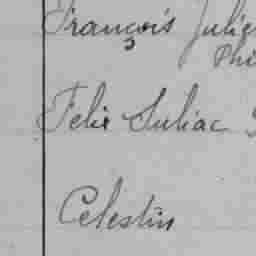 François Julie
Phi
Felix Suliac
Celestin